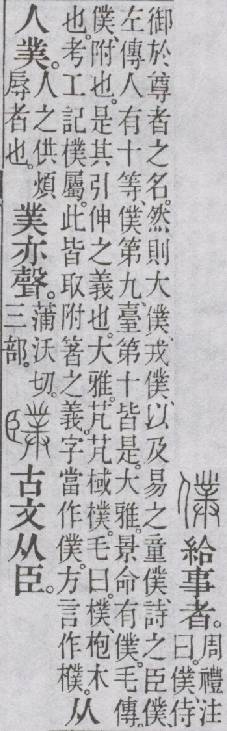 僕給事者。周禮注曰。僕侍
御於尊者之名。然則大僕、戎僕、以及易之童僕、詩之臣僕、
左傳人有十等、僕第九、臺第十皆是。大雅。景命有僕。毛傳。
僕、附也。是其引伸之義也。大雅。芃芃棫樸。毛曰。樸、枹木
也。考工記僕屬。此皆取附箸之義。字當作僕。方言作㯷。从
人菐。人之供煩辱者也。菐亦聲。蒲沃切。三部。𦡜古文从臣。